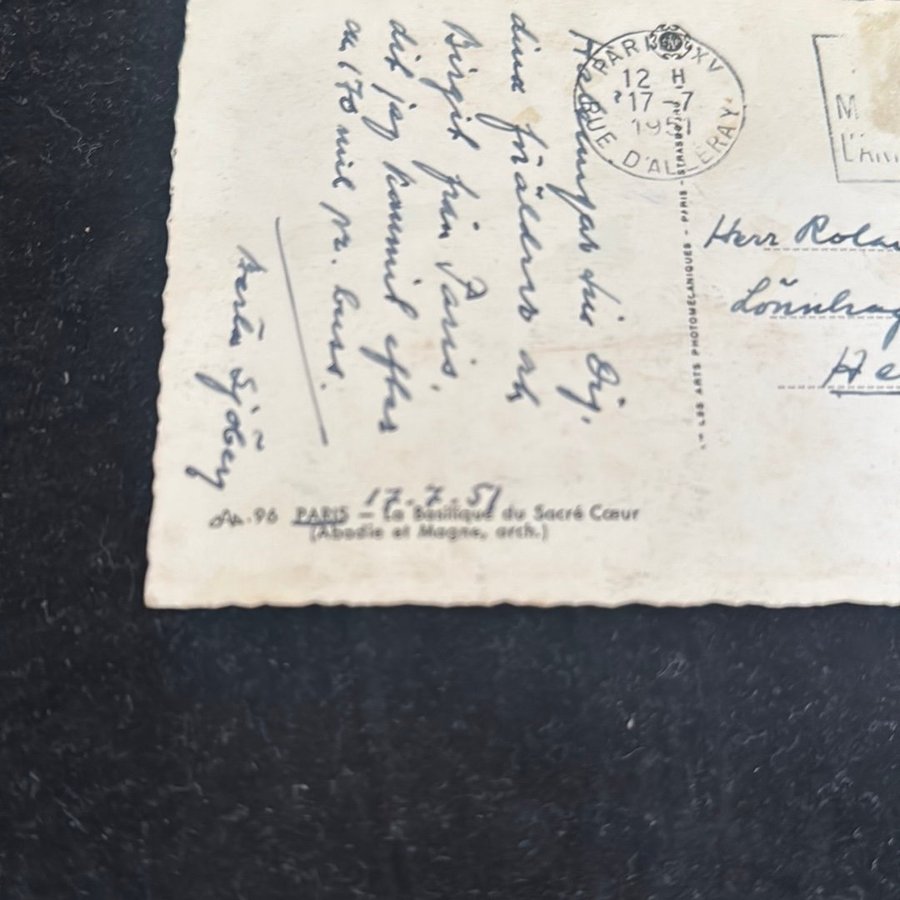 Hälsningar till Dig,
dina föräldrar och
Birgit från Paris,
dit jag kommit efter
170 mil pr. buss.
Sjöberg
17.7.51
96 PARIS — La Basilique du Sacré Cœur
(Abadie et Magne, arch.)
LES ARTS PHOTOMECANIQUES - PARIS - STRASBOURG
PARIS XV
12 H
17 -7
1951
RUE D'ALLERAY
M
L'
Herr
He